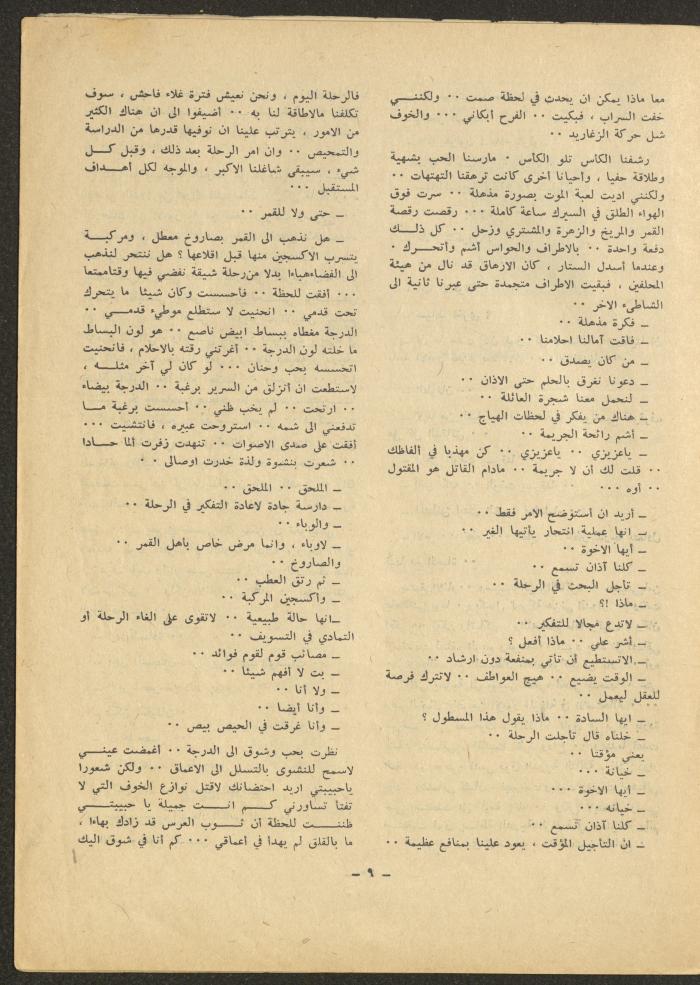 معا ماذا يمكن ان يحدث في لحظة صمت ٠٠ ولكنني
خفت السراب ، فبكيت ٠٠ الفرح أبكاني ٠٠٠ والخوف
شل حركة الزغاريد ٠٠
رشفنا الكأس تلو الكأس ٠ مارسنا الحب بشهية
وطلاقة حفيا ، وأحيانا أخرى كانت ترهقنا التهتهات ٠٠
ولكنني اديت لعبة الموت بصورة مذهلة ٠٠ سرت فوق
الهواء الطلق في السيرك ساعة كاملة ٠٠٠ رقصت رقصة
القمر والمريخ والزهرة والمشتري وزحل ٠٠ كل ذلك
دفعة واحدة ٠٠ بالاطراف والحواس أشم وأتحرك ٠
وعندما أسدل الستار ، كان الارهاق قد نال من هيئة
المحلفين ، فبقيت الاطراف متجمدة حتى عبرنا ثانية الى
الشاطىء الاخر ٠٠
ــ فكرة مذهلة ٠٠
ــ فاقت آمالنا احلامنا ٠٠
ــ من كان يصدق ٠٠
ــ دعونا نفرق بالحلم حتى الاذان ٠٠
ــ لنحمل معنا شجرة العائلة ٠٠
ــ هناك من يفكر في لحظات الهياج ٠٠
ــ أشم رائحة الجريمة ٠٠
ــ ياعزيزي ٠٠ ياعزيزي ٠٠ كن مهذبا في ألفاظك
٠٠ قلت لك أن لا جريمة ٠٠ مادام القاتل هو المقتول
٠٠ أوه ٠٠٠
ــ أريد ان أستوضح الامر فقط ٠٠
ــ انها عملية انتحار يأتيها الغير ٠٠
ــ أيها الاخوة ٠٠
ــ كلنا آذان تسمع ٠٠
ــ تأجل البحث في الرحلة ٠٠
ــ ماذا ؟!
ــ لاتدع مجالا للتفكير ٠٠
ــ أشر علي ٠٠ ماذا أفعل ؟
ــ الاتستطيع أن تأتي بمنفعة دون ارشاد ٠٠
ــ الوقت يضيع ٠٠ هيج العواطف ٠٠ لاتترك فرصة
للعقل ليعمل ٠٠
ــ ايها السادة ٠٠ ماذا يقول هذا المسطول ؟
ــ خلناه قال تأجلت الرحلة ٠٠
يعني مؤقتا ٠٠
ــ خيانة ٠٠٠
ــ ايها الاخوة ٠٠٠
ــ خيانه ٠٠٠
ــ كلنا آذان تسمع ٠٠
ــ ان التأجيل المؤقت ، يعود علينا بمنافع عظيمة ٠٠
فالرحلة اليوم ، ونحن نعيش فترة غلاء فاحش ، سوف
تكلفنا مالاطاقة لنا به ٠٠ أضيفوا الى ان هناك الكثير
من الامور ، يترتب علينا ان نوفيها قدرها من الدراسة
والتمحيص ٠٠ وان امر الرحلة بعد ذلك ، وقبل كل
شيء ، سيبقى شاغلنا الاكبر ، والموجه لكل أهداف
المستقبل ٠٠٠
ــ حتى ولا للقمر ٠٠
ــ هل نذهب الى القمر بصاروخ معطل ، ومركبة
يتسرب الاكسجين منها قبل اقلاعها ؟ هل ننتحر لنذهب
الى الفضاءهباءا بدلا من رحلة شيقة نفضي فيها وقتاممتعا
٠٠٠ أفقت للحظة ٠٠ فأحسست وكأن شيئا ما يتحرك
تحت قدمي ٠٠ انحنيت لا ستطلع موطيء قدمي ٠٠
الدرجة مغطاه ببساط ابيض ناصع ٠٠ هو لون البساط
ما خلته لون الدرجة ٠٠ أغرتني رقته بالاحلام ، فانحنيت
اتحسسه بحب وحنان ٠٠٠ لو كان لي آخر مثله ،
لاستطعت ان أنزلق من السرير برغبة ٠٠ الدرجة بيضاء
٠٠ ارتحت ٠٠ لم يخب ظني ٠٠ أحسست برغبة ما
تدفعني الى شمه ٠٠ استروحت عبيره ، فانتشيت ٠٠٠
أفقت على صدى الاصوات ٠٠ تنهدت زفرت ألما حادا
٠٠ شعرت بنشوة ولذة خدرت اوصالي ٠٠
ــ الملحق ٠٠ الملحق ٠٠
ــ دارسة جادة لاعادة التفكير في الرحلة ٠٠
ــ والوباء ٠٠
ــ لاوباء ، وانما مرض خاص باهل القمر ٠٠
والصاروخ ٠٠
ــ تم رتق العطب ٠٠
ــ وأكسجين المركبة ٠٠
ــ انها حالة طبيعية ٠٠ لاتقوى على الغاء الرحلة أو
التمادي في التسويف ٠٠
ــ مصائب قوم لقوم فوائد ٠٠
ــ بت لا أفهم شيئا ٠٠
ــ ولا أنا ٠٠
ــ وأنا أيضا ٠٠
ــ وأنا غرقت في الحيص بيص ٠٠
نظرت بحب وشوق الى الدرجة ٠٠ أغمضت عيني
لاسمح للنشوى بالتسلل الى الاعماق ٠٠ ولكن شعورا
ياحبيبتي اريد احتضانك لاقتل نوازع الخوف التي لا
تفتأ تساورني كم انت جميلة يا حبيبتي
ظننت للحظة أن ثوب العرس قد زادك بهاءا ،
ما بالقلق لم يهدأ في أعماقي ٠٠٠ كم أنا في شوق اليك
ــ ٩ ــ